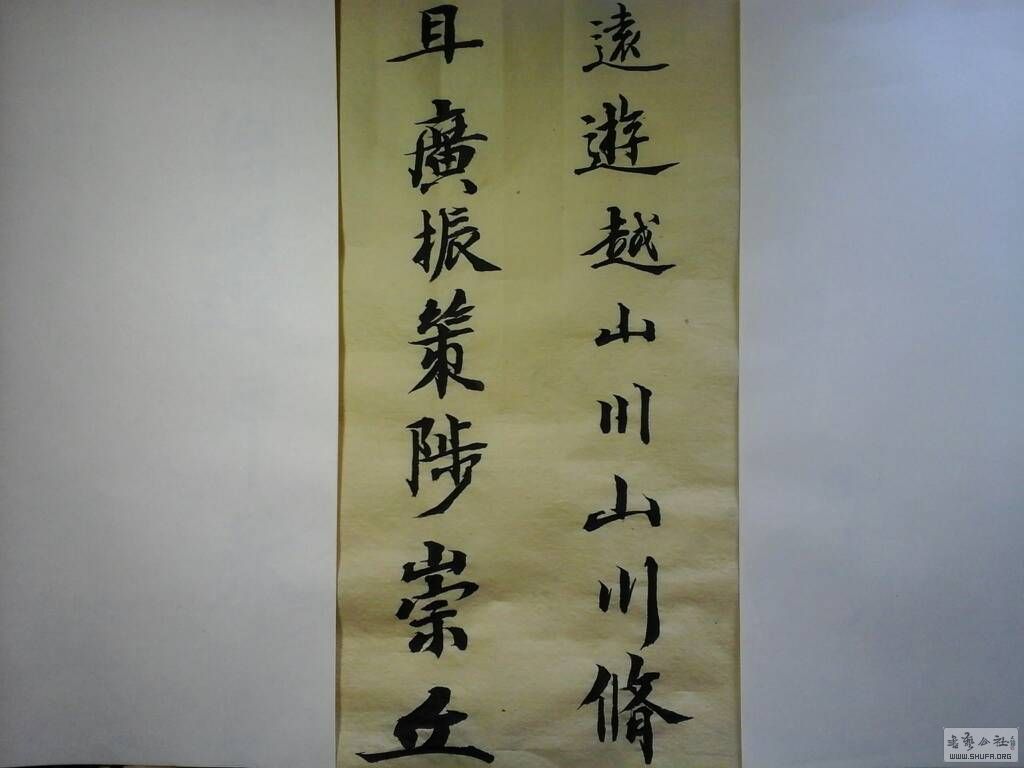 遠遊越山川山川脩
且廣振策陟崇丘
WWW.SHUFA.ORG